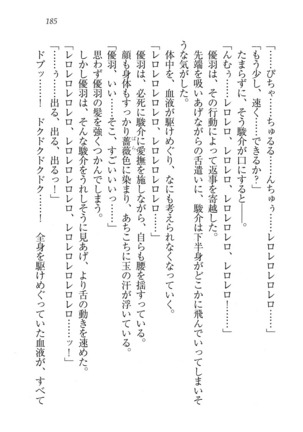 185
「……ぴちゃ……ちゅるる……んちゅぅ……レロレロレロ……」
「もう少し、速く……できるか？」
たまらずに、そう駿介が口にすると――。
「んむぅ……レロレロレロ、レロレロレロ、レロレロレロ……！」
優羽は、その行動によって返事を寄越した。
先端を吸いあげながらの舌遣いに、駿介は下半身がどこかに飛んでいってしまいそ
うな気がした。
体中を、血液が駆けめぐり、なにも考えられなくなっていく。
優羽は、必死に駿介に愛撫を施しながら、自らも腰を揺すっていく。
顔も身体もすっかり薔薇色に染まり、あちこちに玉の汗が浮いていく。
「レロレロレロ、レロレロレロ、レロレロレロ、レロレロレロ……」
「そ、それ、いい……そ、すごいいいっ……」
思わず優羽の髪を強くつかんでしまう。
しかし優羽は、そんな駿介をうれしそうに見あげ、より舌の動きを速めた。
「レロレロレロレロ、レロレロレロレロ、レロレロレロレロ……ッ！」
「だ……っ……出る、出る、出るっ！」
ドブッ……！　ドクドクドクドク……！　全身を駆けめぐっていた血液が、すべて